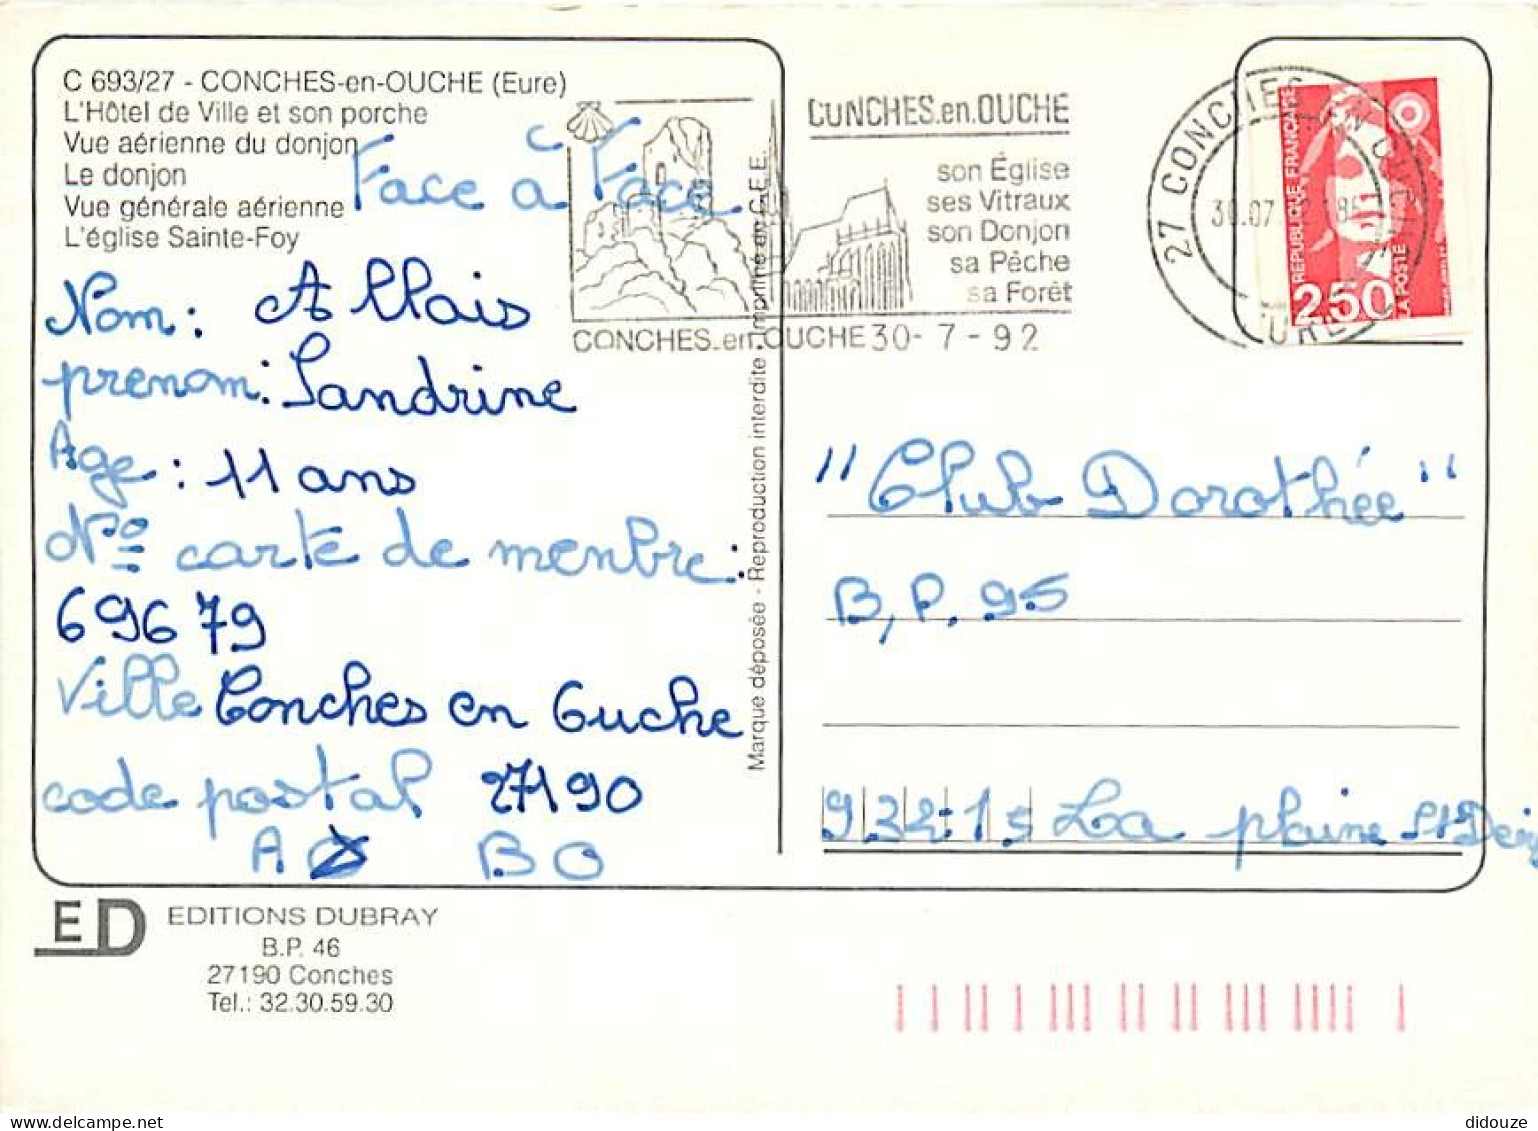 C 693/27 - CONCHES-en-OUCHE (Eure)
L'Hôtel de Ville et son porche
Vue aérienne du donjon
Le donjon
Vue générale aérienne
L'église Sainte-Foy
Face à Face
Nom: Allais
prenom: Sandrine
Age: 11 ans
N° carte de menbre:
69679
Ville Conches en Ouche
code postal 27190
A BO
EDITIONS DUBRAY
B.P. 46
27190 Conches
Tel.: 32.30.59.30
ED
Marque déposée - Reproduction interdite
CONCHES.en.OUCHE
son Église
ses Vitraux
son Donjon
sa Pêche
sa Forêt
CONCHES.en.OUCHE 30-7-92
27 CONCHES EN OUCHE
30.07
EURE
REPUBLIQUE FRANÇAISE
2,50
LA POSTE
"Club Dorothée"
B.P. 95
93215 La plaine St Denis
didouze